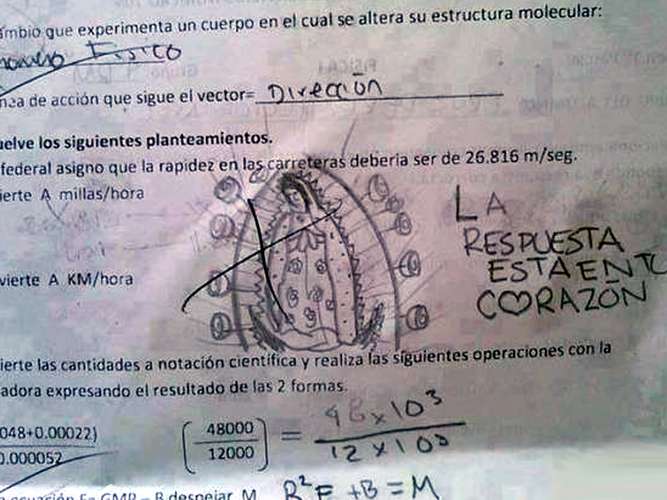 ambio que experimenta un cuerpo en el cual se altera su estructura molecular:
Fisico
nea de acción que sigue el vector= Dirección
uelve los siguientes planteamientos.
federal asigno que la rapidez en las carreteras deberia ser de 26.816 m/seg.
ierte A millas/hora
LA
RESPUESTA
ESTA EN TU
CORAZÓN
vierte A KM/hora
ierte las cantidades a notación cientifica y realiza las siguientes operaciones con la
adora expresando el resultado de las 2 formas.
048+0.00022)
0.000052
(48000/12000) = 48x10³/12x10
R²F +B = M